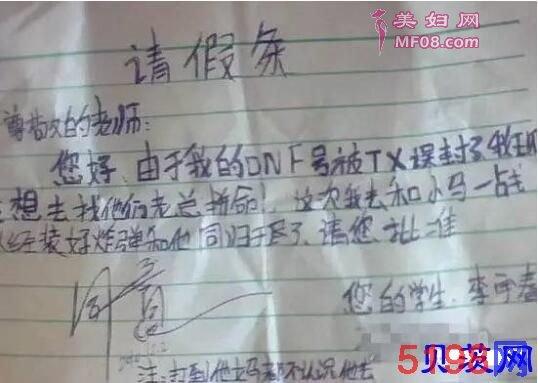 美妇网
MF08.com
请假条
尊敬的老师:
您好,由于我的DNF号被TX误封了,我现
想去找他们老总拼命!这次我去和小马一战
经装好炸弹和他同归于尽了,请您批准
同意
您的学生:李宇春
注:打到他妈都不认识他去
5198
贝菠网